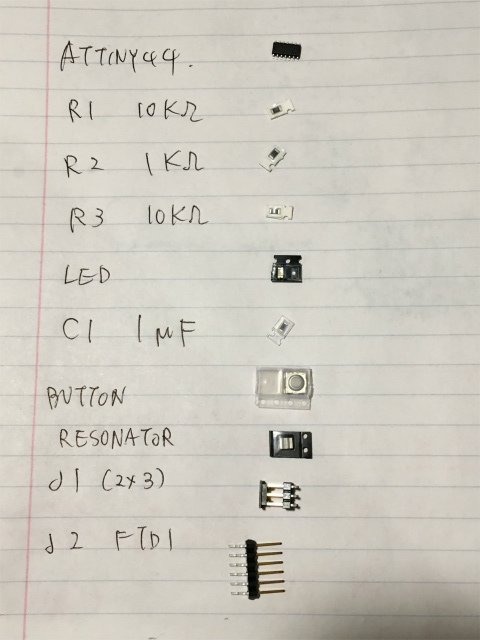 ATTINY44.
R1 10KΩ
R2 1KΩ
R3 10KΩ
LED
C1 1μF
BUTTON
RESONATOR
J1 (2x3)
J2 FTDI